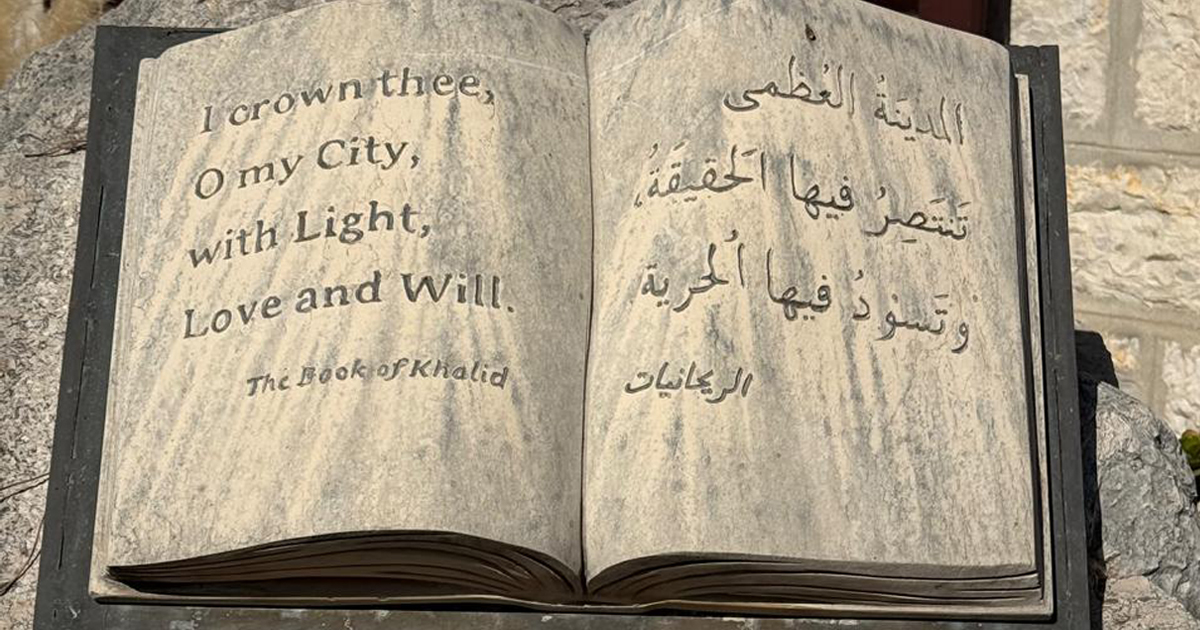 I crown thee,
O my City,
with Light,
Love and Will.
The Book of Khalid
المدينَةُ العُظمى
تَنتَصِرُ فيها اَلحَقيقَةُ،
وتَسودُ فيها اُلحرية
الريحانيات